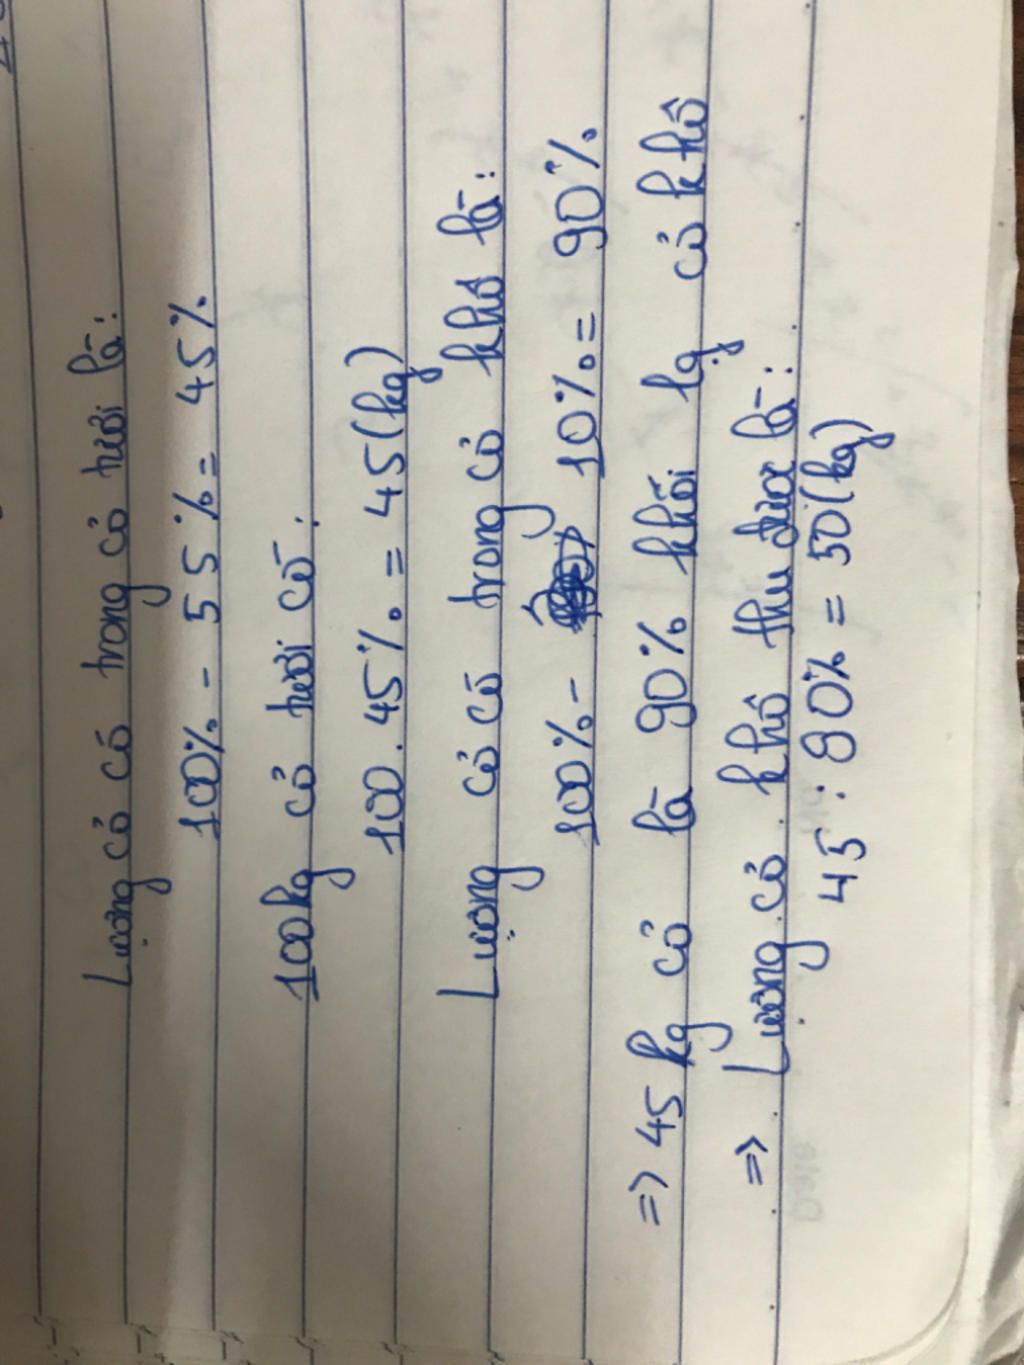 Lượng cỏ có trong cỏ tươi là:
100% - 55% = 45%
100kg cỏ tươi có:
100.45% = 45(kg)
Lượng cỏ có trong cỏ khô là:
100% - 10% = 90%
=> 45kg cỏ là 90% khối lg cỏ khô
=> Lượng cỏ khô thu được là:
45 : 90% = 50(kg)